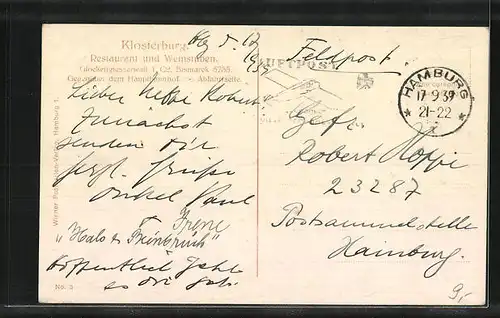 Klosterburg.
Restaurant und Weinstuben.
Glockengiesserwall 1, Tel. Bismarck 6788.
Gegenüber dem Hauptbahnhof Ankunftseite.
Hbg d. 17
Feldpost.
LUFTPOST
HAMBURG
17.9.39
21-22
Lieber Neffe Robert
Zunächst
senden Dir
herzl. Grüße
Onkel Paul
Irene
"Hals &
Hoffentlich geht
es dir gut.
Gefr.
Robert Hoppe
23287
Postsammelstelle
Hamburg.
Hamburg 1.
No. 5
9,-